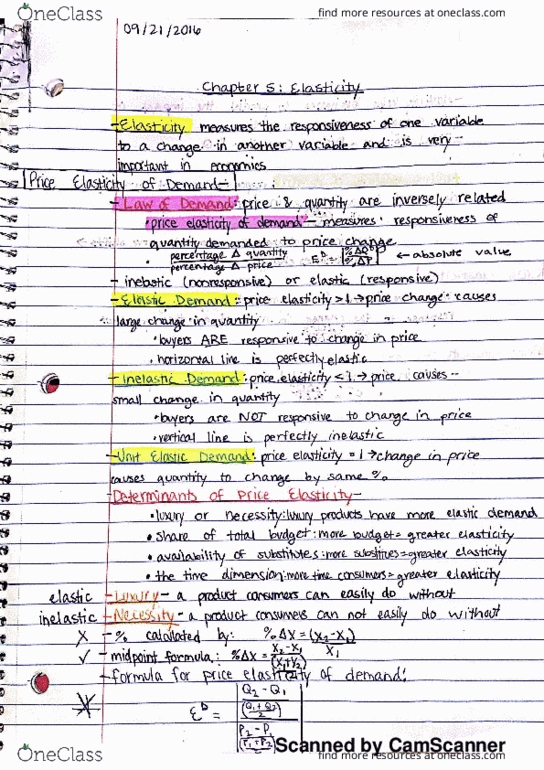 OneClass
find more resources at oneclass.com
09/21/2016
Chapter 5: Elasticity
-Elasticity measures the responsiveness of one variable
to a change in another variable and is very
important in economics
Price Elasticity of Demand-
-Law of Demand: price & quantity are inversely related
•price elasticity of demand - measures responsiveness of
quantity demanded to price change
• percentage Δ quantity
percentage Δ price
E^D = |%ΔQ^D / %ΔP| ← absolute value
- inelastic (nonresponsive) or elastic (responsive)
-Elastic Demand: price elasticity >1 → price change causes
large change in quantity
•buyers ARE responsive to change in price
•horizontal line is perfectly elastic
-Inelastic Demand: price elasticity <1 → price causes
small change in quantity
•buyers are NOT responsive to change in price
•vertical line is perfectly inelastic
-Unit Elastic Demand: price elasticity = 1 → change in price
causes quantity to change by same %
-Determinants of Price Elasticity-
•luxury or necessity: luxury products have more elastic demand
•share of total budget: more budget = greater elasticity
•availability of substitutes: more substitutes = greater elasticity
•the time dimension: more time consumers = greater elasticity
elastic -Luxury - a product consumers can easily do without
inelastic -Necessity - a product consumers can not easily do without
X -% calculated by: %ΔX = (X2-X1) / X1
✓ -midpoint formula: %ΔX = X2-X1 / (X1+X2) / 2
-formula for price elasticity of demand:
E^D = | Q2 - Q1 / (Q1+Q2 / 2) / P2 - P1 / (P1+P2 / 2) |
OneClass
Scanned by CamScanner
find more resources at oneclass.com